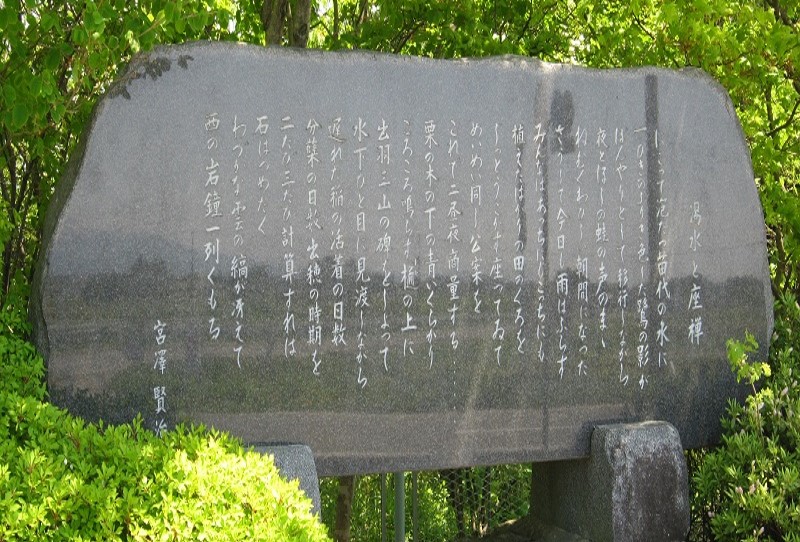 渇水と座禅
にごって泡だつ苗代の水に
一ぴきのぶりき色した鷺の影が
ぼんやりとして移行しながら
夜どほしの蛙の声のまゝ
ねむくわびしい朝間になった
さうして今日も雨はふらず
みんなはあっちにもこっちにも
植えたばかりの田のくろを
じっとうごかず座ってゐて
めいめい同じ公案を
これで二昼夜商量する……
栗の木の下の青いくらがり
ころころ鳴らす樋の上に
出羽三山の碑をしょって
水下ひと目に見渡しながら
遅れた稲の活着の日数
分蘖の日数出穂の時期を
二たび三たび計算すれば
石はつめたく
わづかな雲の縞が冴えて
西の岩鐘一列くもる
宮澤賢治